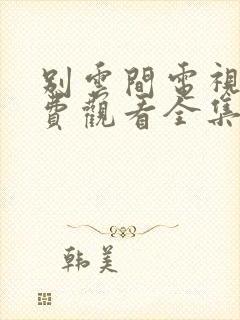 別雲間電視
費觀看全集
韩美